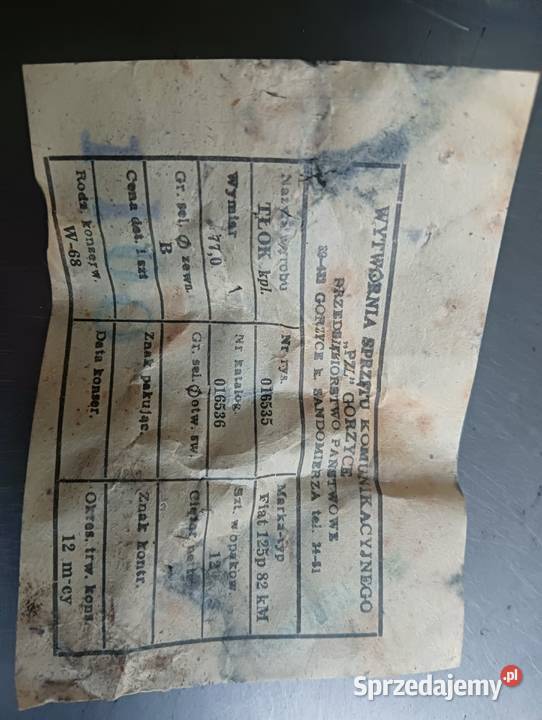 WYTWÓRNIA SPRZĘTU KOMUNIKACYJNEGO
„PZL" GORZYCE
PRZEDSIĘBIORSTWO PAŃSTWOWE
GORZYCE k. SANDOMIERZA tel. 34-51
Nazwa wyrobu
TŁOK kpl.
Nr rys.
016535
Marka-typ
Fiat 125p 82 kM
Wymiar
77,0
Nr katalog.
016536
Szt. w opakow.
12
Gr. sel. Ø zewn.
B
Gr. sel. Ø otw. sw.
Ciężar netto
Cena det. 1 szt
Znak pakując.
Znak kontr.
Rodz. konserw.
W-68
Data konser.
Okres. trw. kons.
12 m-cy
Sprzedajemy.pl